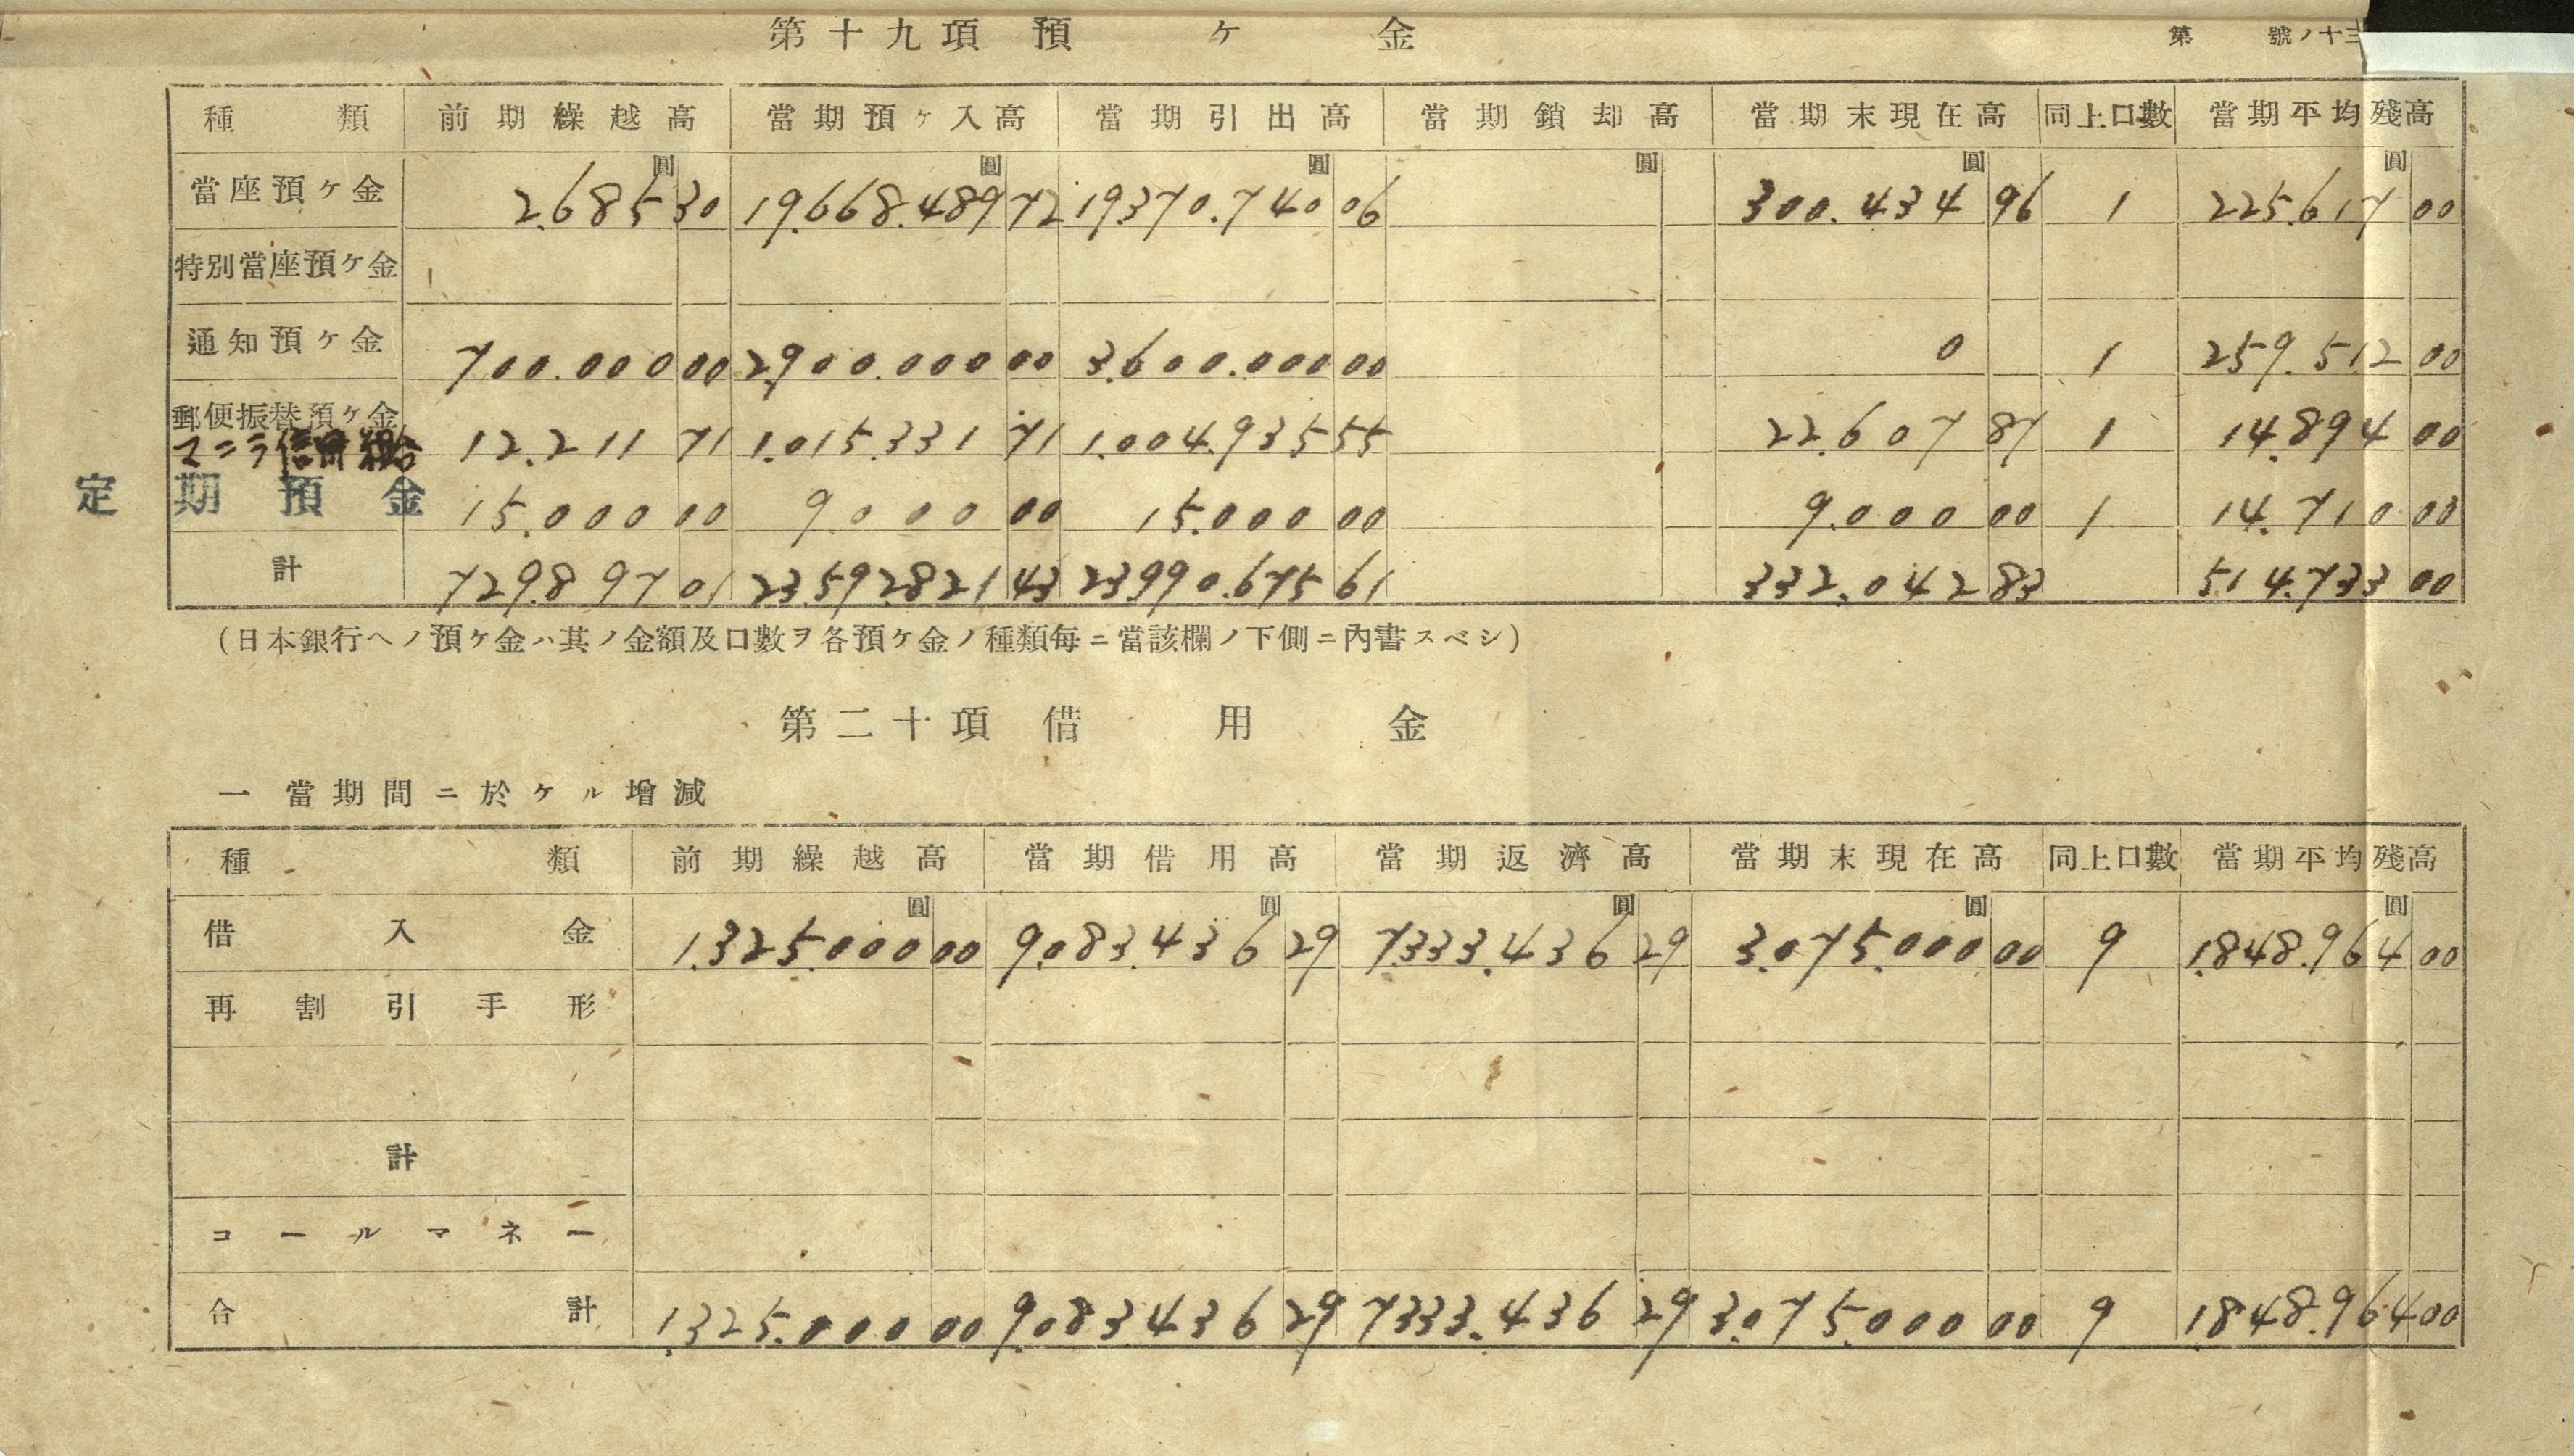 第十九項 預ケ金
第 號ノ十三
種類 前期繰越高 當期預ケ入高 當期引出高 當期鎖却高 當期末現在高 同上口數 當期平均殘高
圓 圓 圓 圓 圓 圓
當座預ケ金 2.685 30 19.668.489 72 19.370.740 06 300.434 96 1 225.617 00
特別當座預ケ金
通知預ケ金 700.000 00 2.900.000 00 3.600.000 00 0 1 259.512 00
郵便振替預ケ金 12.211 71 1.015.331 71 1.004.935 55 22.607 87 1 14.894 00
マニラ信用組合
定期預金 15.000 00 9.000 00 15.000 00 9.000 00 1 14.710 00
計 729.897 01 23.592.821 43 23.990.675 61 332.042 83 514.733 00
(日本銀行ヘノ預ケ金ハ其ノ金額及口數ヲ各預ケ金ノ種類每ニ當該欄ノ下側ニ內書スベシ)
第二十項 借用金
一 當期間ニ於ケル增減
種類 前期繰越高 當期借用高 當期返濟高 當期末現在高 同上口數 當期平均殘高
圓 圓 圓 圓 圓
借入金 1.325.000 00 9.083.436 29 7.333.436 29 3.075.000 00 9 1.848.964 00
再割引手形
計
コールマネー
合計 1.325.000 00 9.083.436 29 7.333.436 29 3.075.000 00 9 1.848.964 00